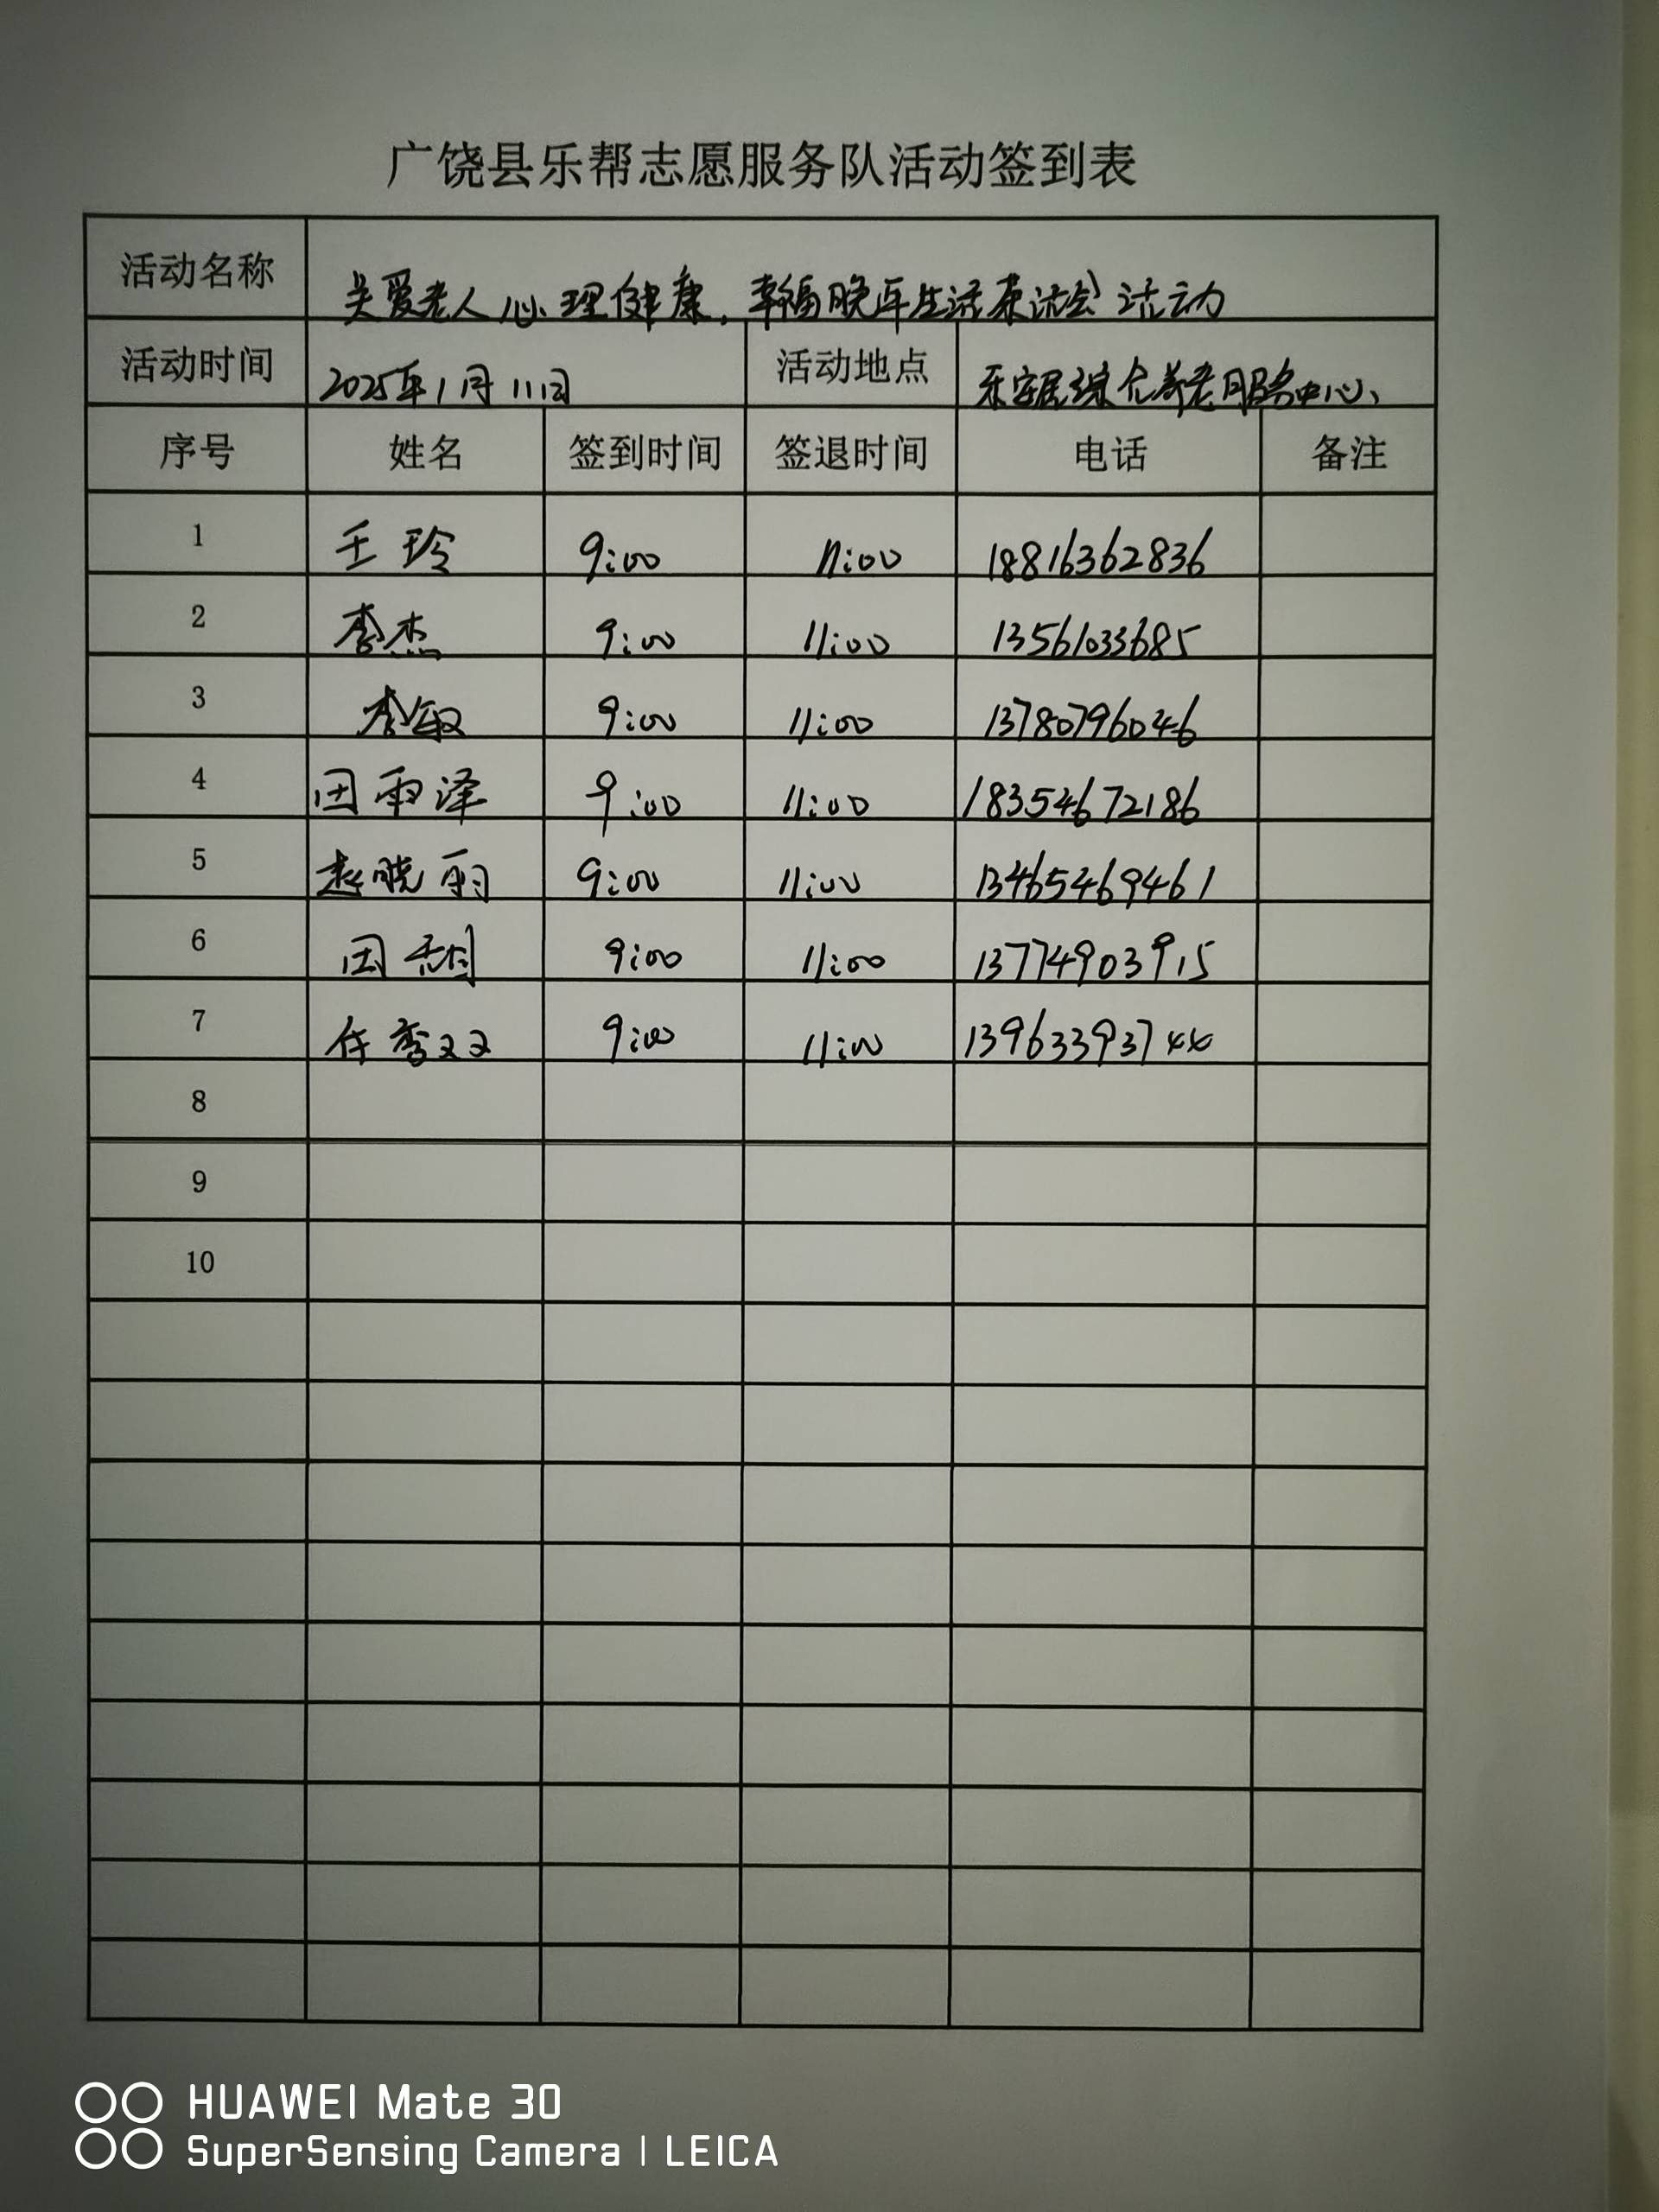 广饶县乐帮志愿服务队活动签到表
活动名称 关爱老人心理健康,幸福晚年生活茶话会活动
活动时间 2025年1月11日 活动地点 乐安居综合养老服务中心、
序号 姓名 签到时间 签退时间 电话 备注
1 王玲 9:00 11:00 18816362836
2 李杰 9:00 11:00 13561033685
3 李敏 9:00 11:00 13780796046
4 田雨泽 9:00 11:00 18354672186
5 赵晓丽 9:00 11:00 13465469461
6 田甜 9:00 11:00 13774903915
7 任秀双 9:00 11:00 13963393744
8
9
10
HUAWEI Mate 30
SuperSensing Camera | LEICA